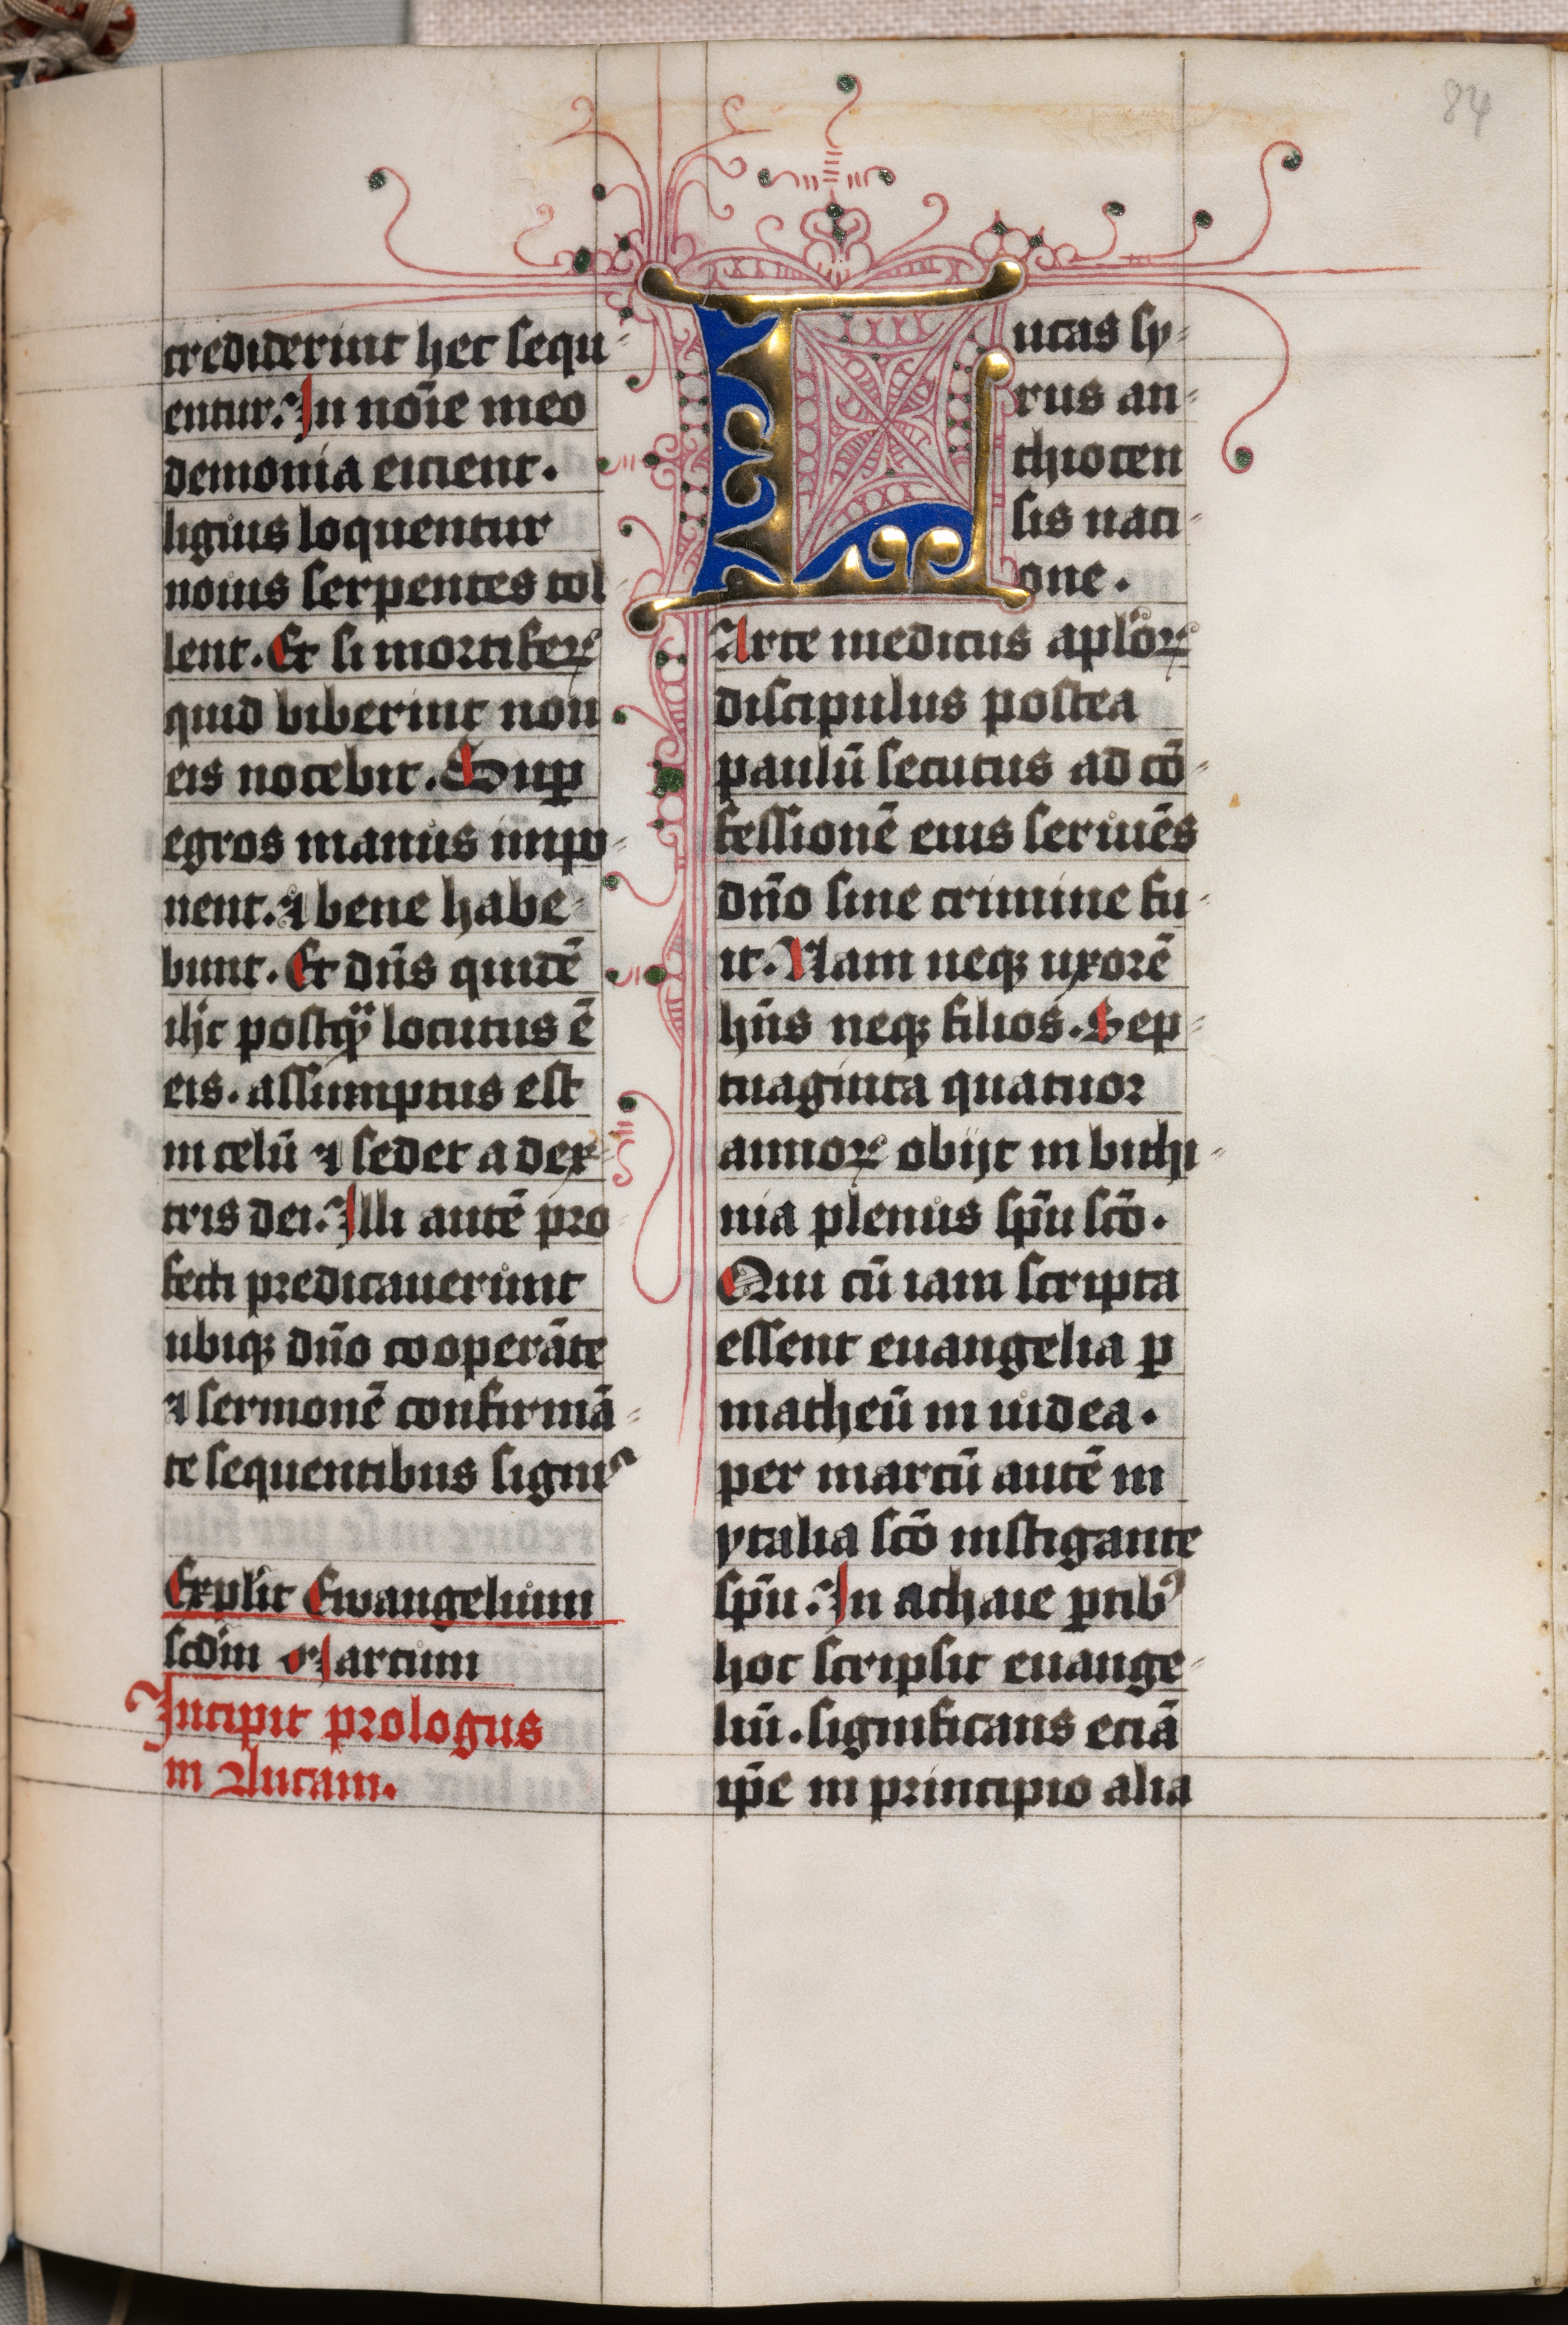 84
crediderint hec sequ
entur. In noīe meo
demonia eicient.
liguis loquentur
nouis serpentes tol
lent. Et si mortiferꝝ
quid biberint non
eis nocebit. Sup̄
egros manus impo
nent. ⁊ bene habe
bunt. Et dn̄s quidē
ih̄c postqͣ locutus ē
eis. assumptus est
in celū ⁊ sedet a dex
tris dei. Illi autē pro
fecti predicauerunt
ubiqꝫ dn̄o cooperāte
⁊ sermonē confirmā
te sequentibus signis
Explic̄it Ewangelium
scd̄m Marcum
Incipit prologus
in Lucam.
Lucas sy
rus an
thiocen
sis nati
one.
Arte medicus apl̄oꝝ
discipulus postea
paulū secutus ad cō
fessionē eius seruiēs
dn̄o sine crimine fu
it. Nam neqꝫ uxorē
hn̄s neqꝫ filios. Sep
tuaginta quatuor
annoꝝ obijt in bithi
nia plenus sp̄u scō.
Qui cū iam scripta
essent euangelia ꝑ
matheū in iudea.
per marcū autē in
ytalia scō instigante
sp̄u. In achaie ꝑtibꝰ
hoc scripsit euange
liū. significans eciā
ip̄e in principio alia